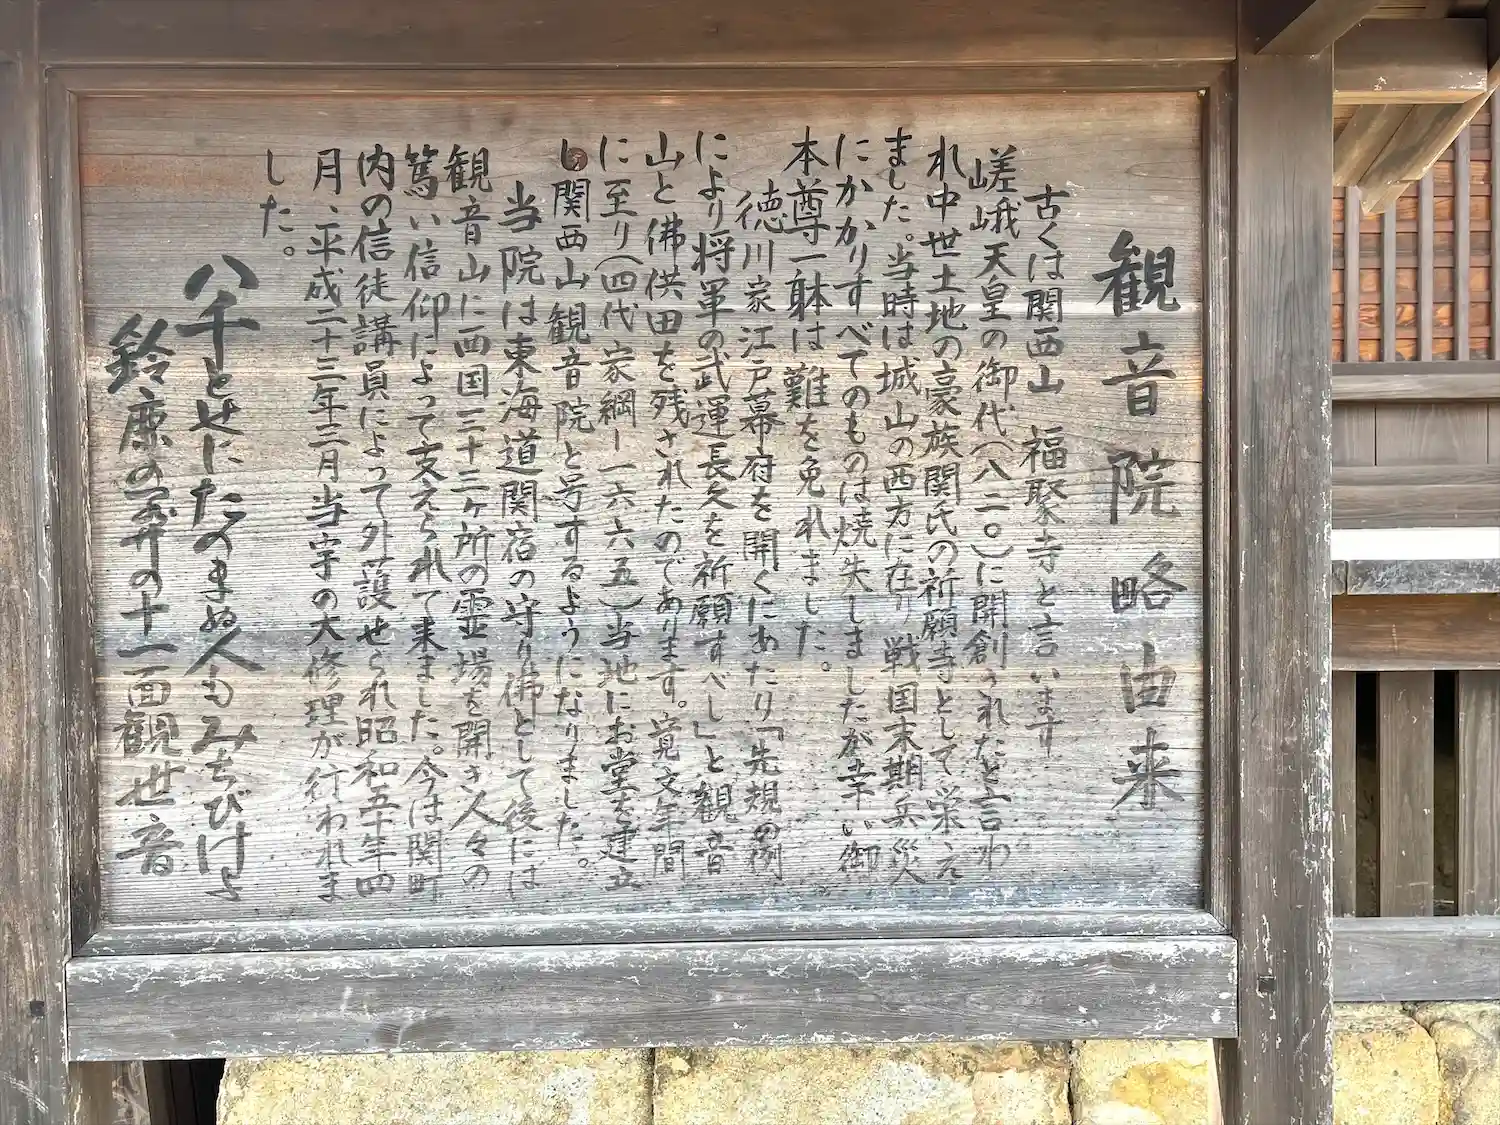 観音院略由来
古くは関西山 福聚寺と言います
嵯峨天皇の御代(八二〇)に開創されたと言わ
れ中世土地の豪族関氏の祈願寺として栄え
ました。当時は城山の西方に在り戦国末期兵災
にかかりすべてのものは焼失しましたが幸い御
本尊一躰は難を免れました。
徳川家江戸幕府を開くにあたり「先規の例
により将軍の武運長久を祈願すべし」と観音
山と佛供田を残されたのであります。寛文年間
に至り(四代家綱ー一六六五)当地にお堂を建立
し関西山観音院と号するようになりました。
当院は東海道関宿の守り佛として後には
観音山に西国三十三ヶ所の霊場を開き人々の
篤い信仰によって支えられて来ました。今は関町
内の信徒講員によって外護せられ昭和五十年四
月、平成二十三年三月当宇の大修理が行われま
した。
八千とせにたのまぬ人もみちびけよ
鈴鹿の関の十一面観世音